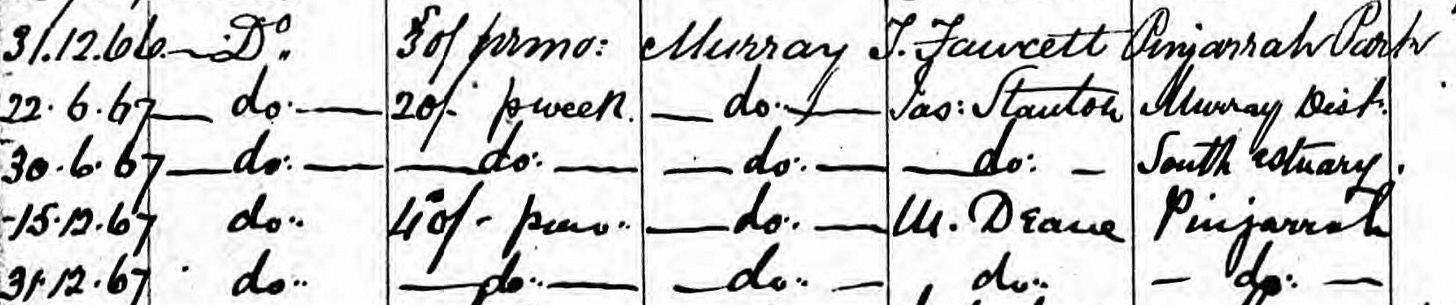 31.12.66 — Do. 30/ prmo: Murray T. Fawcett Pinjarrah Park
22.6.67 — do. — 20/- pweek. — do. — Jas: Stanton Murray Dist.
30.6.67 — do. — — do. — — do. — — do: — South estuary.
15.12.67 do.. 40/- pmo.. — do.. — W. Deane Pinjarrah
31.12.67 do.. — do. — — do.. — do.. — do.. —